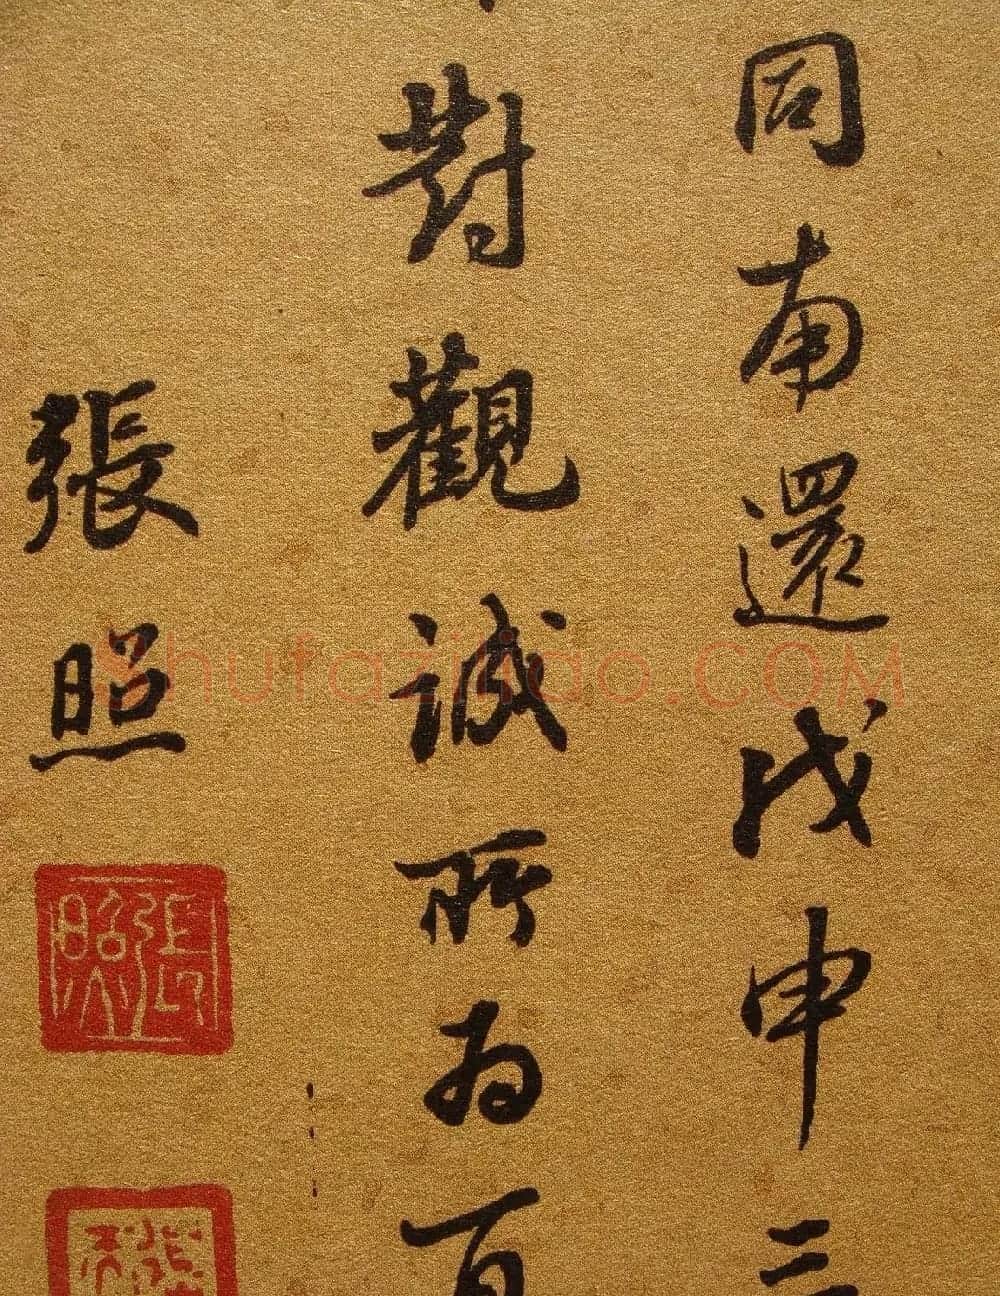 同南還戊申三
對觀誠所為百
張照
張照
Shufaziliao.COM